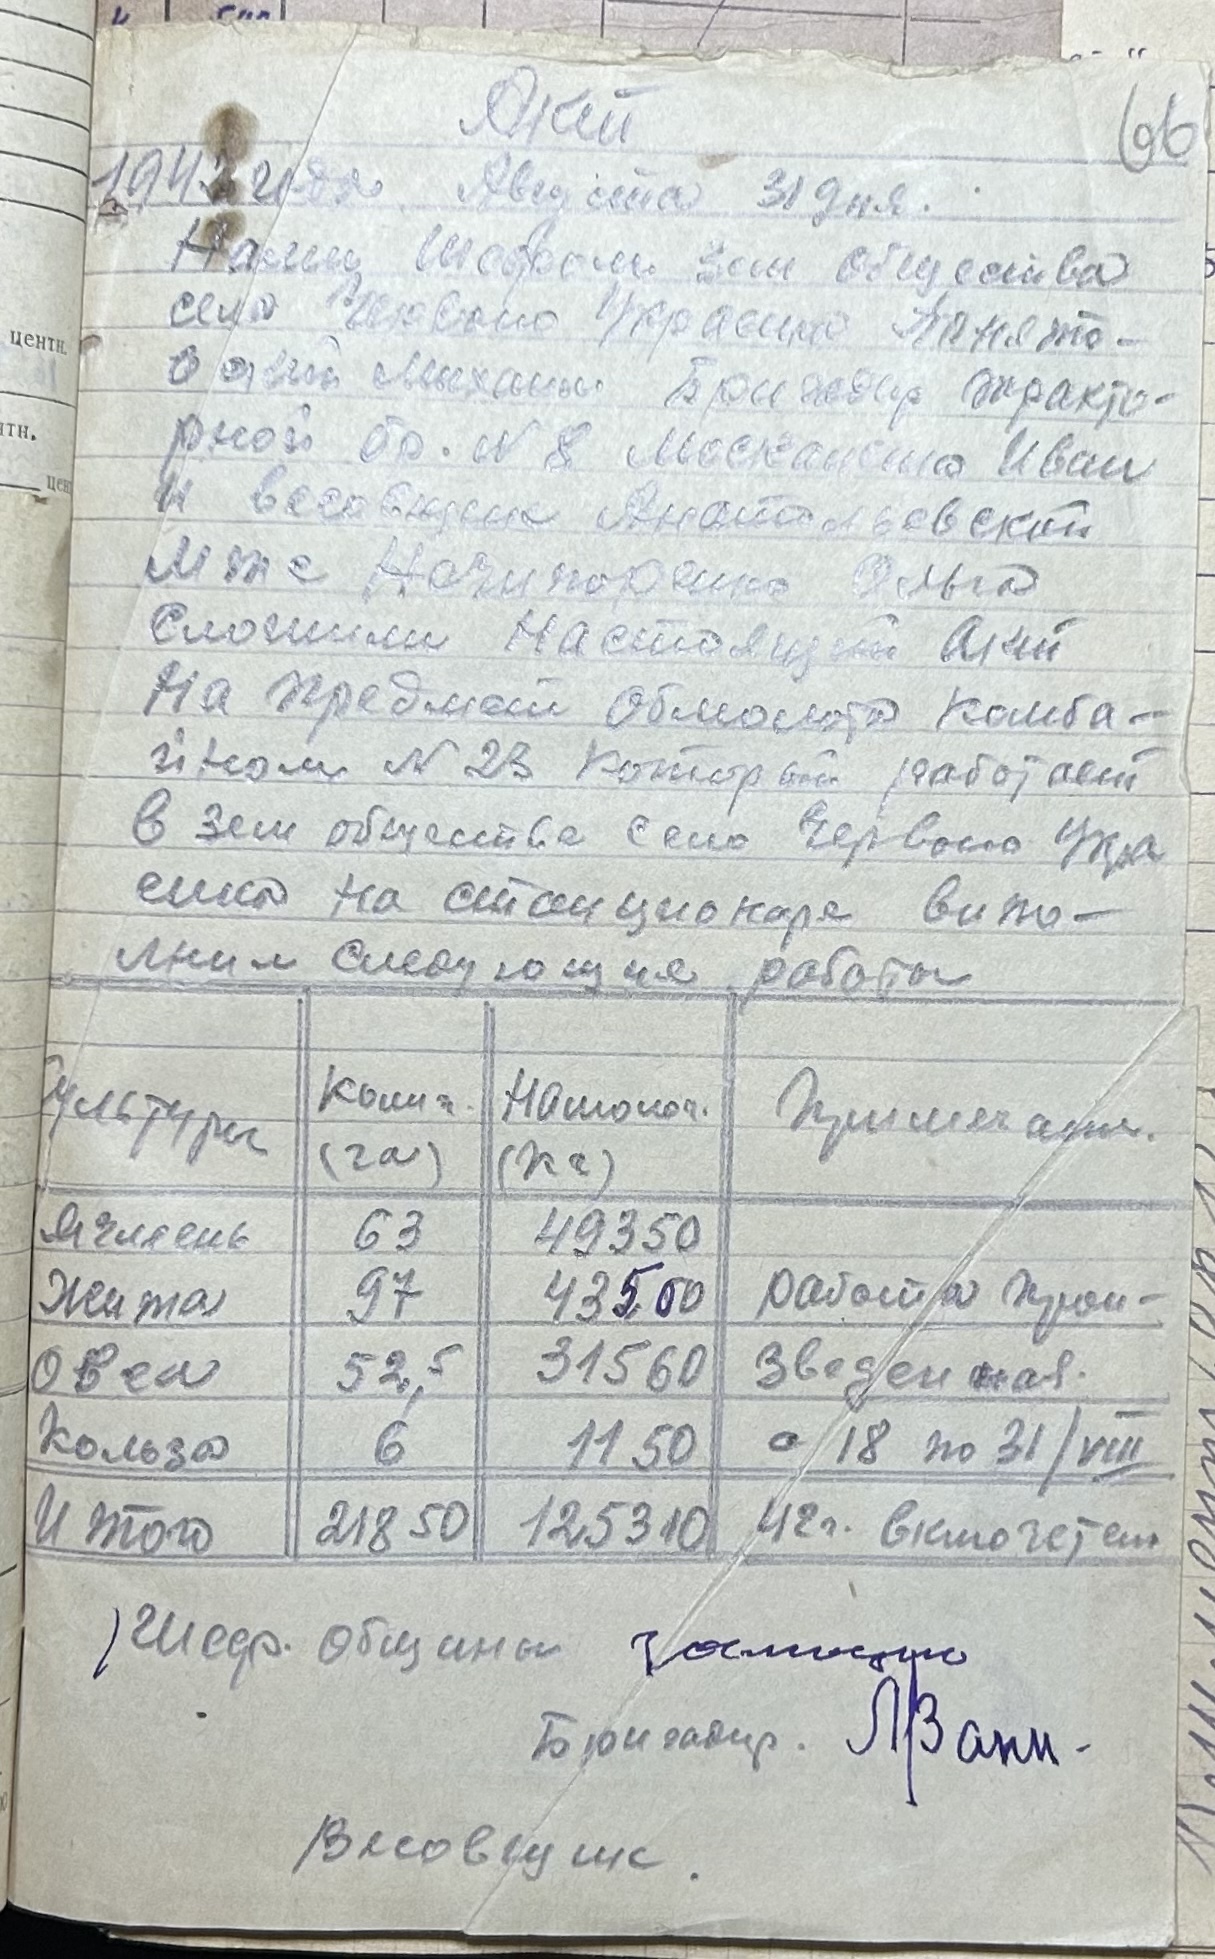 Акт
66
1942 года Августа 31 дня.
Нами Шефом Зем Общества
село Червоно Украинка
Бригадир тракто-
рной бр. N 8 Москаленко Иван
и весовщик Анатольевской
мтс Нечипоренко Ольга
Сложили Настоящий Акт
На предмет Обмолота Комба-
йном N 23 Который работает
в Зем обществе село Червоно Укра
инка на станционаре випо-
лнил следующия работы
Культуры Колич. Намолоч. Примечани.
(га) (кг)
Ячмень 63 49350
Жита 97 43500 работа прои-
Овса 52,5 31560 зведенная.
Кольза 6 1150 с 18 по 31/VIII
Итого 21850 125310 42г. включетел
Шеф. Общины
Бригадир.
Весовщик.
центн.
нтн.
цен